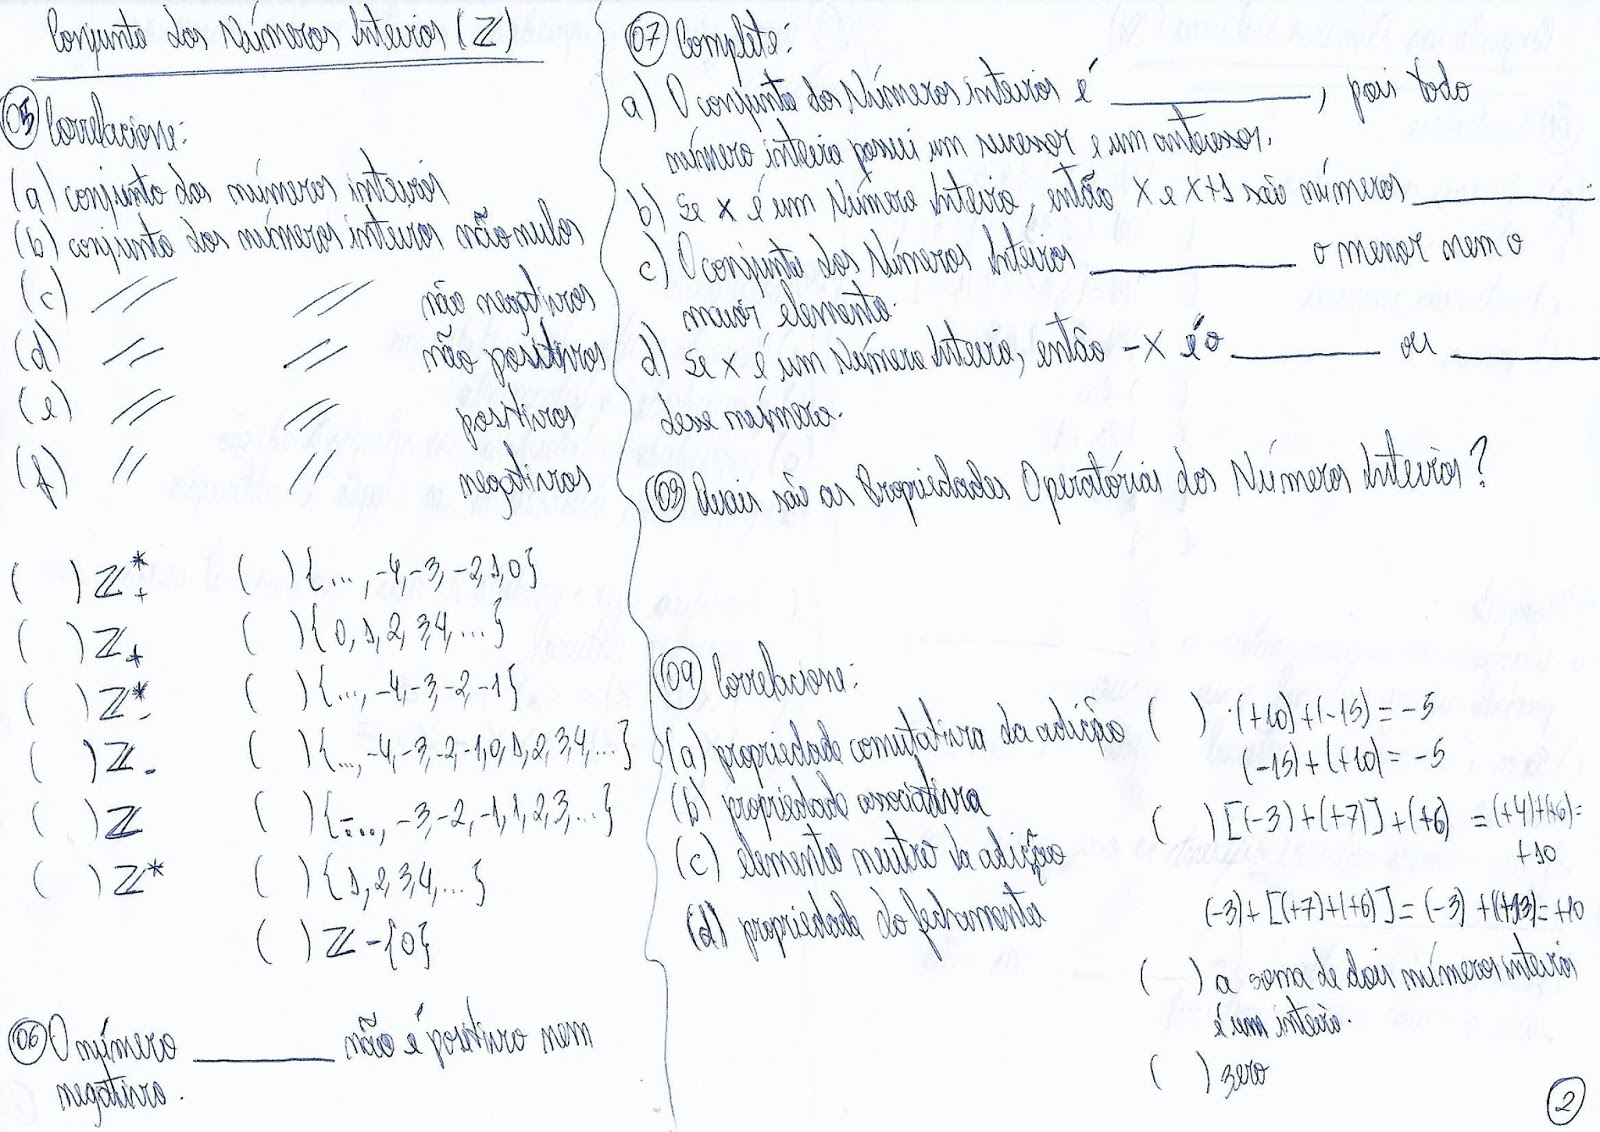 Conjunto dos Números Inteiros (ℤ)
05 Correlacione:
(a) conjunto dos números inteiros
(b) conjunto dos números inteiros não nulos
(c) // // não negativos
(d) // // não positivos
(e) // // positivos
(f) // // negativos
( ) ℤ*+ ( ) {..., -4, -3, -2, 1, 0}
( ) ℤ+ ( ) {0, 1, 2, 3, 4, ...}
( ) ℤ*- ( ) {..., -4, -3, -2, -1}
( ) ℤ- ( ) {..., -4, -3, -2, -1, 0, 1, 2, 3, 4, ...}
( ) ℤ ( ) {..., -3, -2, -1, 1, 2, 3, ...}
( ) ℤ* ( ) {1, 2, 3, 4, ...}
( ) ℤ - {0}
06 O número ________ não é positivo nem
negativo.
07 Complete:
a) O conjunto dos Números inteiros é ________, pois todo
número inteiro possui um sucessor e um antecessor.
b) Se x é um Número Inteiro, então x e x+1 são números ________
c) O conjunto dos Números Inteiros ________ o menor nem o
maior elemento.
d) Se x é um Número Inteiro, então -x é o ________ ou ________
desse número.
08 Quais são as Propriedades Operatórias dos Números Inteiros?
09 Correlacione:
(a) propriedade comutativa da adição
(b) propriedade associativa
(c) elemento neutro da adição
(d) propriedade do fechamento
( ) · (+10) + (-15) = -5
(-15) + (+10) = -5
( ) [(-3) + (+7)] + (+6) = (+4) + (+6) =
+10
(-3) + [(+7) + (+6)] = (-3) + (+13) = +10
( ) a soma de dois números inteiros
é um inteiro.
( ) zero
2